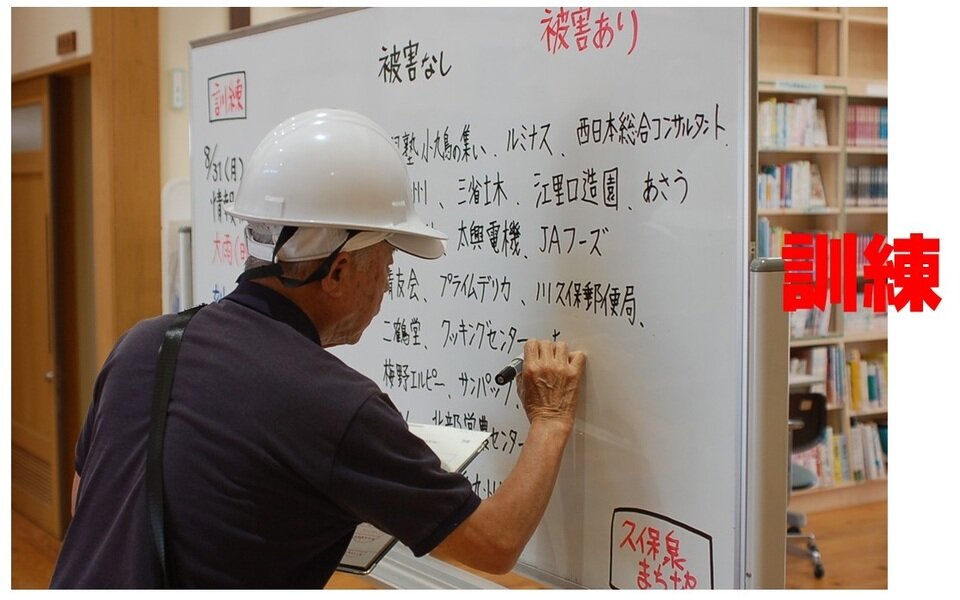 被害なし
被害あり
訓練
8/31(月)
大雨(
塾 小九鳥の集い、ルミナス、西日本総合コンサルタント
三省土木、江里口造園、あさう
太興電機、JAフーズ
友会、プライムデリカ、川久保郵便局、
二鶴堂、クッキングセンター
梅野エルピー、サンパック、
北部営農センター
久保泉
まち
訓練